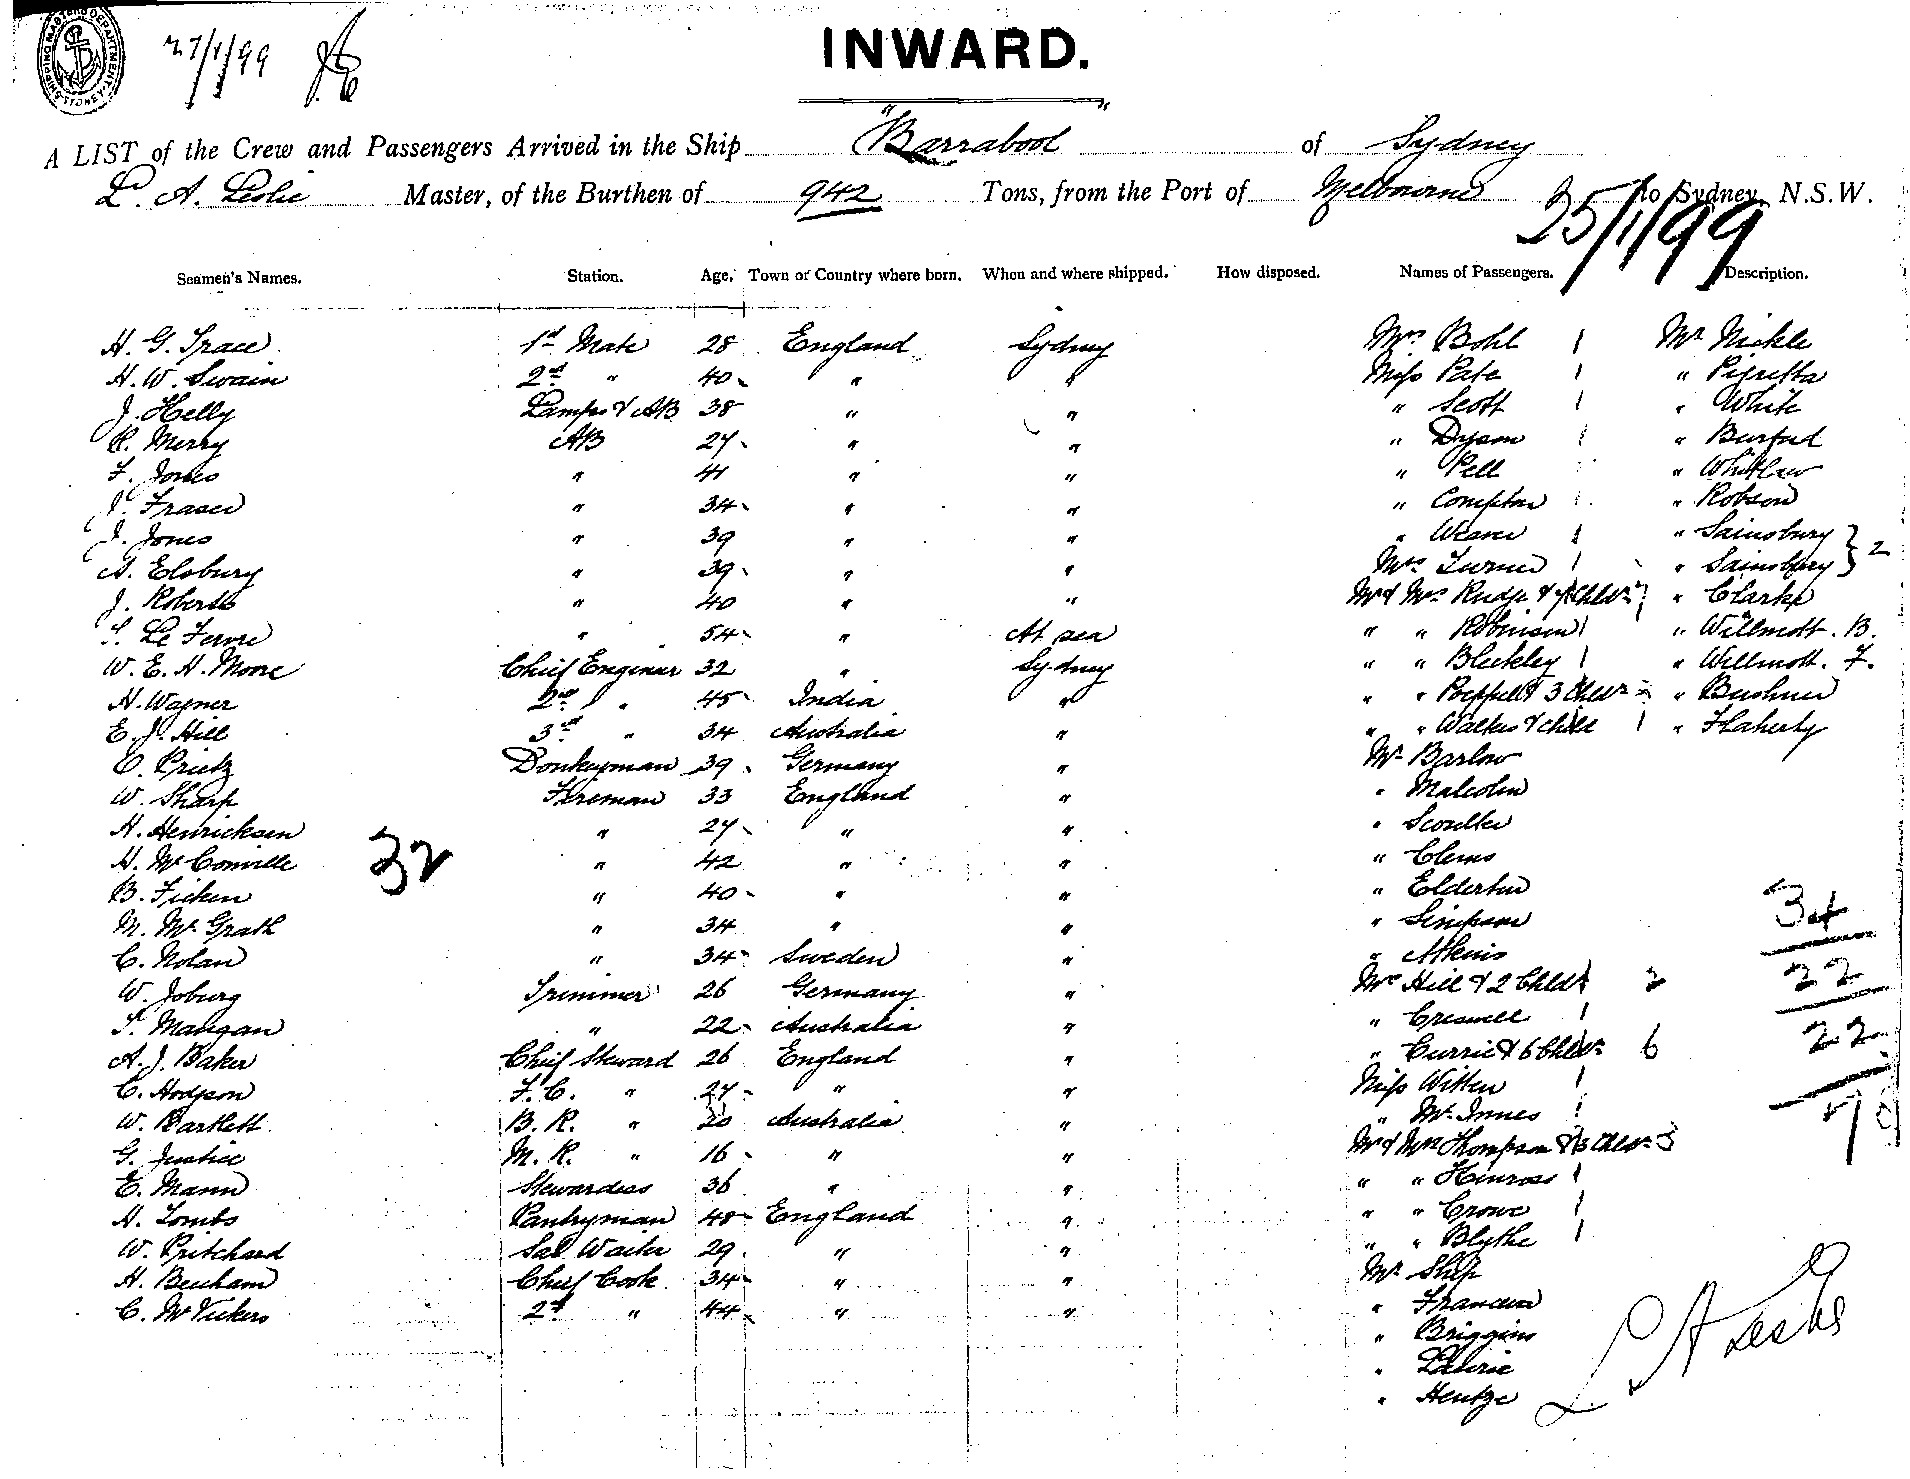 SHIPPING MASTER'S DEPARTMENT SYDNEY
27/1/99
INWARD.
A LIST of the Crew and Passengers Arrived in the Ship "Barrabool" of Sydney
L. A. Leslie Master, of the Burthen of 942 Tons, from the Port of Melbourne to Sydney, N.S.W.
25/1/99
Seamen's Names. Station. Age. Town or Country where born. When and where shipped. How disposed. Names of Passengers. Description.
H. G. Trace 1st Mate 28 England Sydney Mrs Bohl 1 Mr Nickle
H. W. Swain 2nd " 40 " " Miss Pate 1 "
J. Helly Lamps & AB 38 " " " Scott 1 " White
R. Merry AB 27 " " " Dyson 1 " Burford
F. Jones " 41 " " " Pell " Whitlaw
J. Fraser " 34 " " " Compton 1 " Robson
J. Jones " 39 " " " Weaver 1 " Sainsbury } 2
A. Elsbury " 39 " " Mrs Turner 1 " Sainsbury }
J. Roberts " 40 " " Mr & Mrs Rudge & Chldn " Clarke
S. Le Fevre " 54 " At sea " " Robinson 1 " Willmott. B.
W. E. H. Moore Chief Enginer 32 " Sydney " " Bleckley 1 " Willmott. F.
H. Wagner 2nd " 45 India " " " Poeppel & 3 Chldn " Bushner
E. J. Hill 3rd " 34 Australia " " " Walker & child 1 " Flaherty
O. Prietz Donkeyman 39 Germany " Mr Barlow
W. Sharp Fireman 33 England " " Malcolm
H. Henricksen " 27 " " "
H. McConville " 42 " " " Clems
B. Ficken " 40 " " " Elderton
32
M. McGrath " 34 " " " Simpson
34
C. Nolan " 34 Sweden " " Atkins
W. Joburg Trimmer 26 Germany " Mrs Hill & 2 Chldn 2
22
T. Mangan " 22 Australia " " Creswell 1
A. J. Baker Chief Steward 26 England " " Currie & 6 Chldn 6
22
C. Hodgson F.C. " 27 " " Miss Witten 1
W. Bartlett B.R. " 20 Australia " " McInnes 1
78
G. Justice M.R. " 16 " " Mr & Mrs Thompson & 3 Chldn 3
E. Mann Stewardess 36 " " " " Kinross 1
H. Tombs Pantryman 48 England " " " Crowe 1
W. Pritchard Sal Waiter 29 " " " " Blythe 1
H. Benham Chief Cook 34 " " Mr Ship
C. McVickers 2nd " 44 " " "
" Briggins
" Laurie
" Hentze
L A Leslie